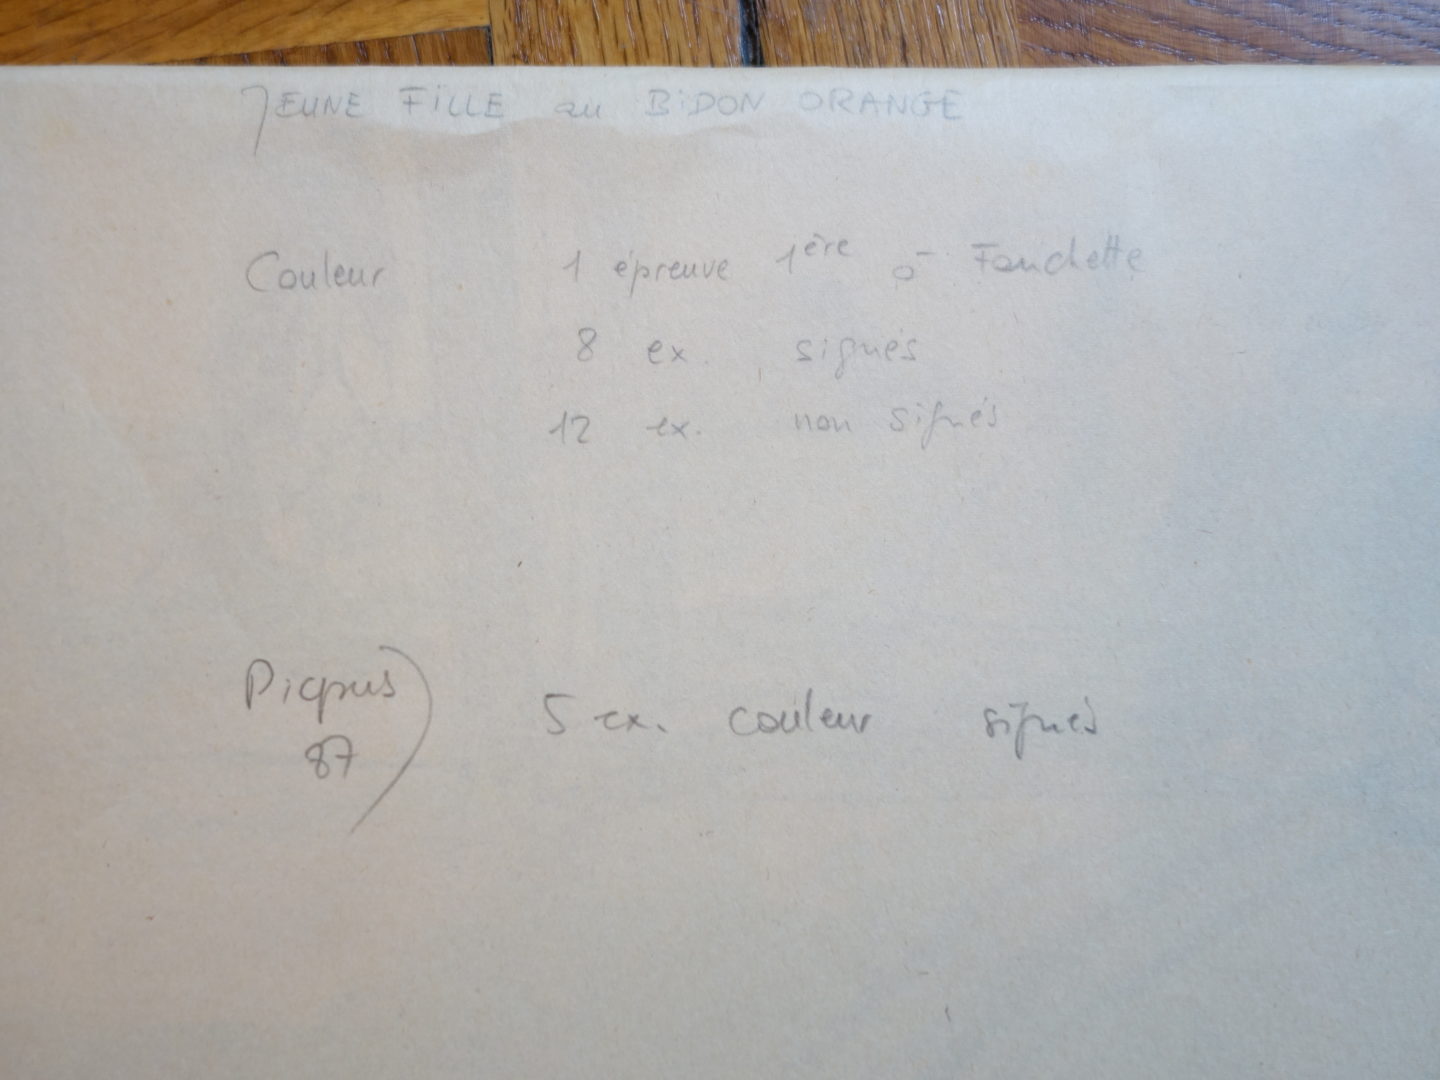 JEUNE FILLE au BIDON ORANGE
Couleur 1 épreuve 1ère à Fanchette
8 ex. signés
12 ex. non signés
Picpus 5 ex. couleur signés
87